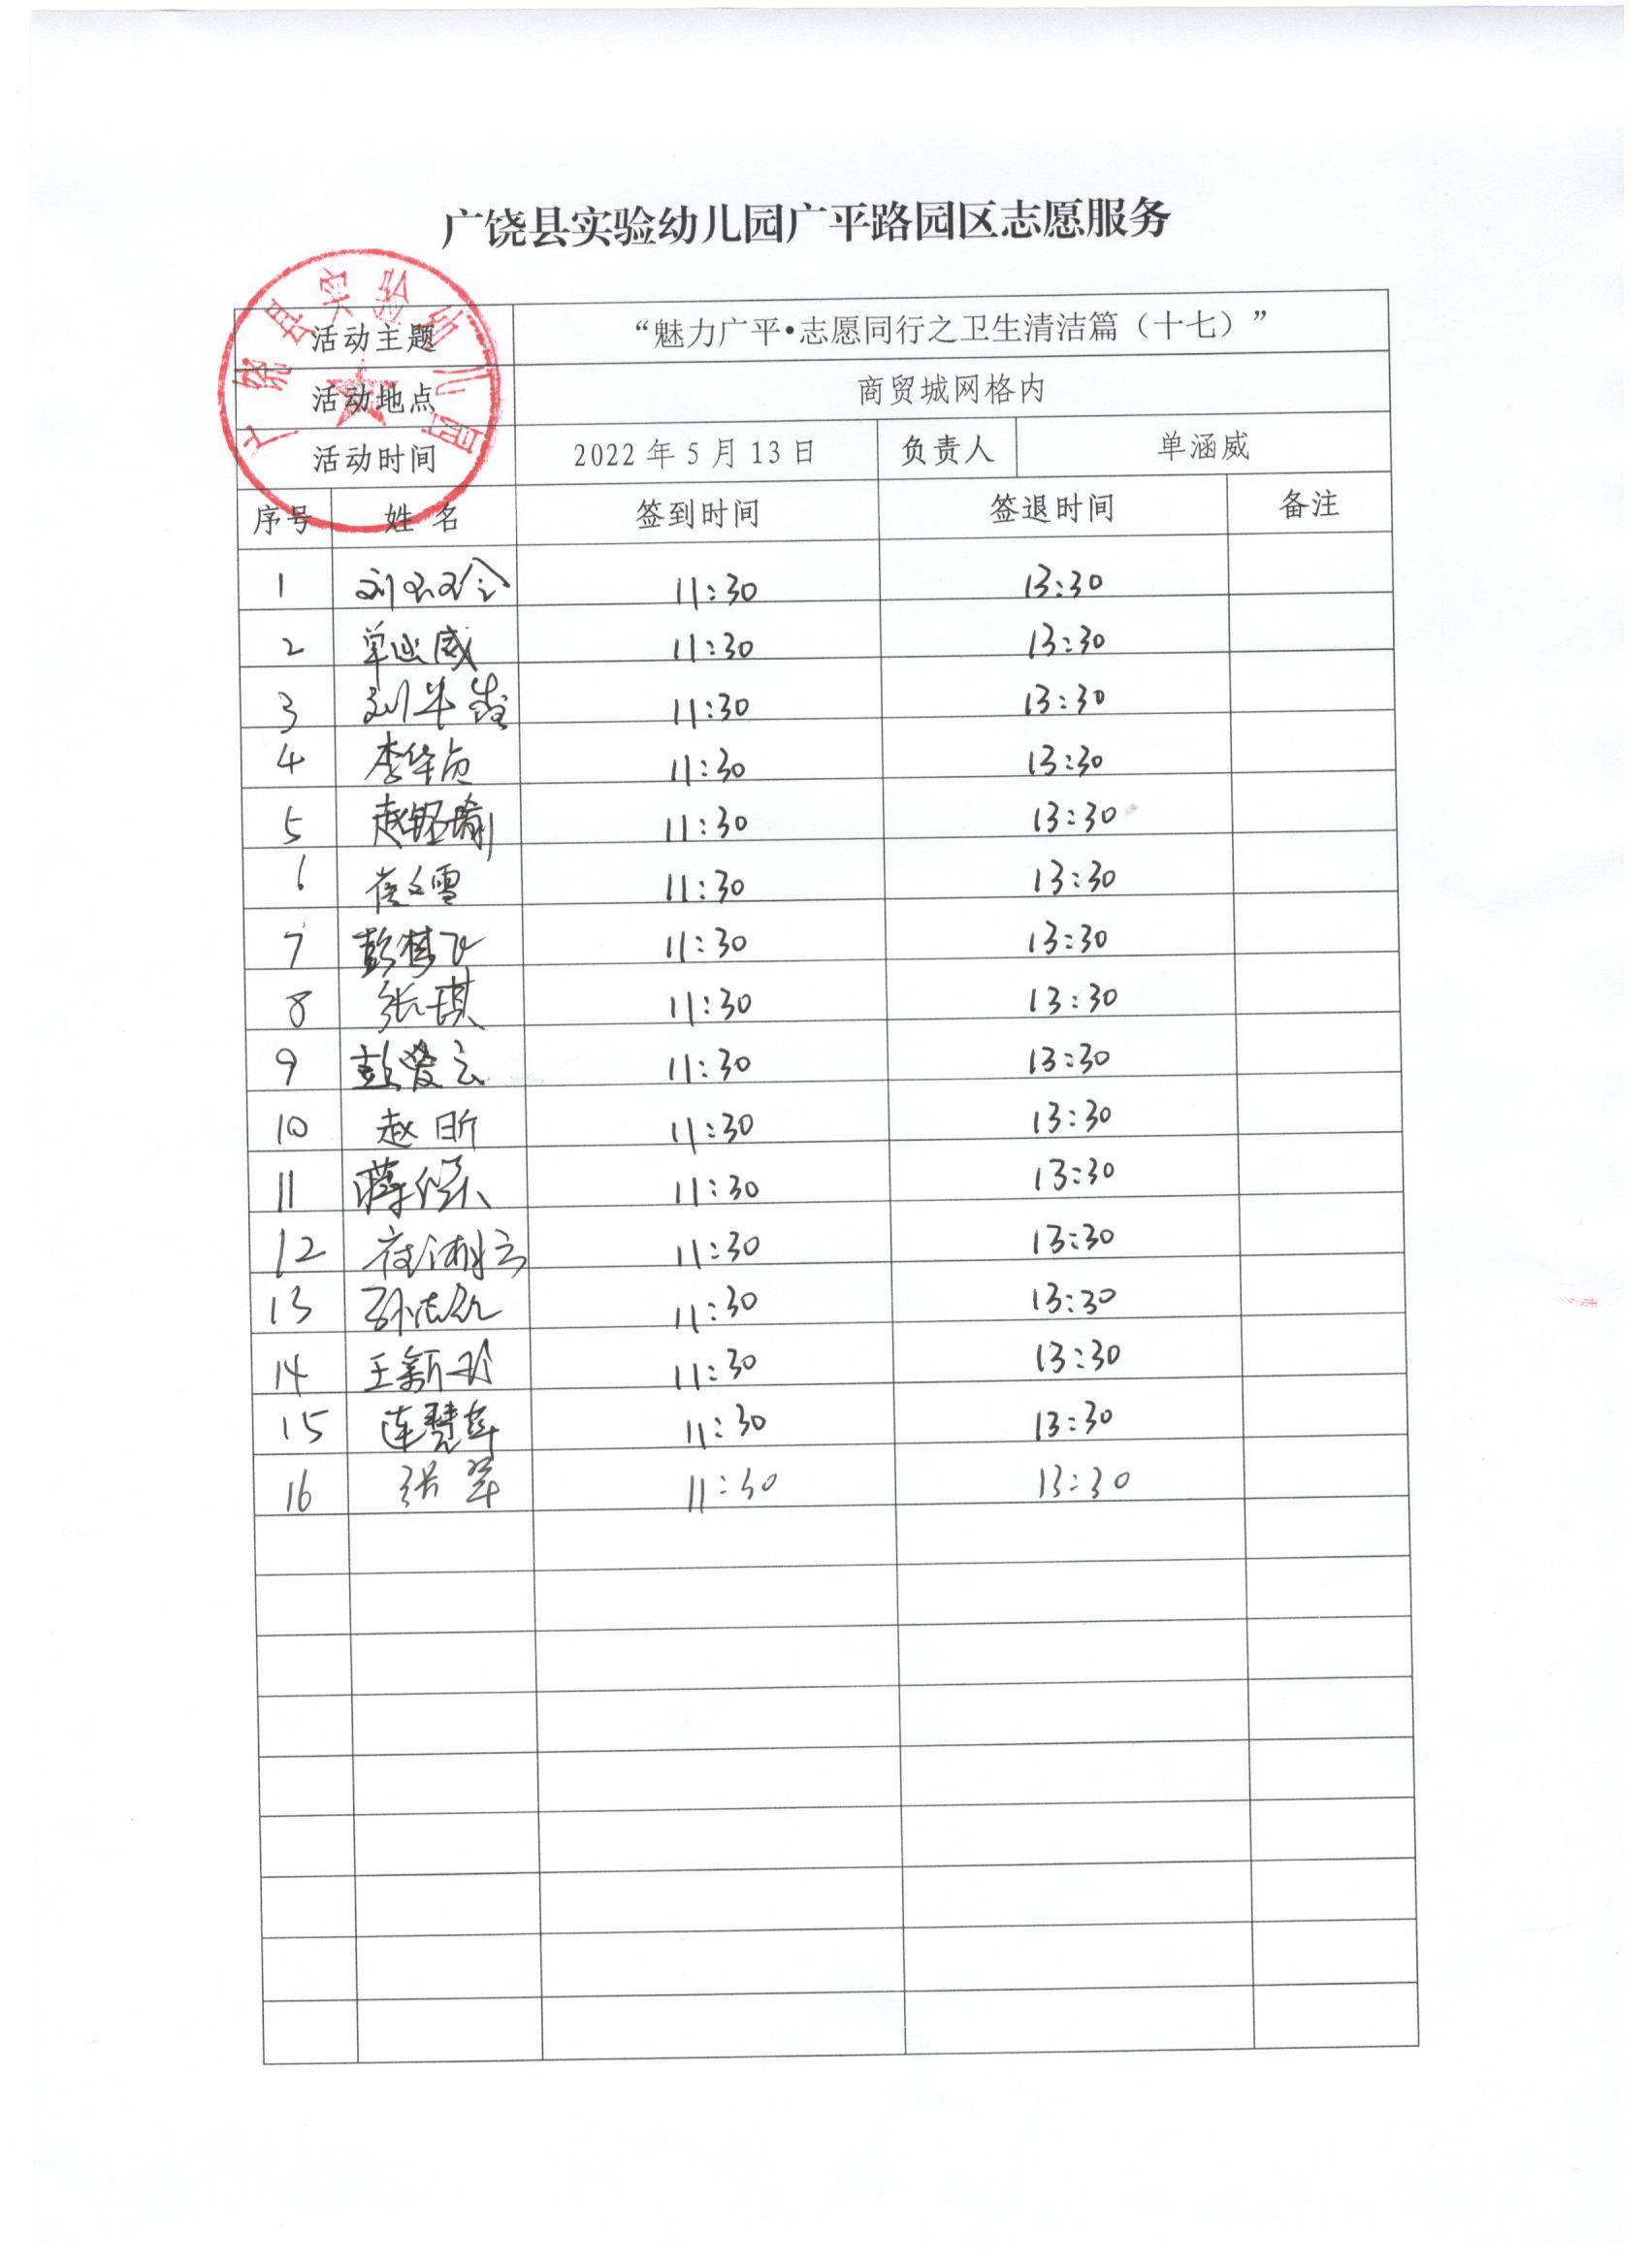 广饶县实验幼儿园广平路园区志愿服务
广饶县实验幼儿园
活动主题 “魅力广平•志愿同行之卫生清洁篇（十七）”
活动地点 商贸城网格内
活动时间 2022年5月13日 负责人 单涵威
序号 姓名 签到时间 签退时间 备注
1 刘 11:30 13:30
2 单涵威 11:30 13:30
3 刘 11:30 13:30
4 李华贞 11:30 13:30
5 赵铭瑜 11:30 13:30
6 崔文雪 11:30 13:30
7 彭梦飞 11:30 13:30
8 张琪 11:30 13:30
9 彭爱云 11:30 13:30
10 赵昕 11:30 13:30
11 11:30 13:30
12 11:30 13:30
13 孙 11:30 13:30
14 王新玲 11:30 13:30
15 连慧萍 11:30 13:30
16 张翠 11:30 13:30